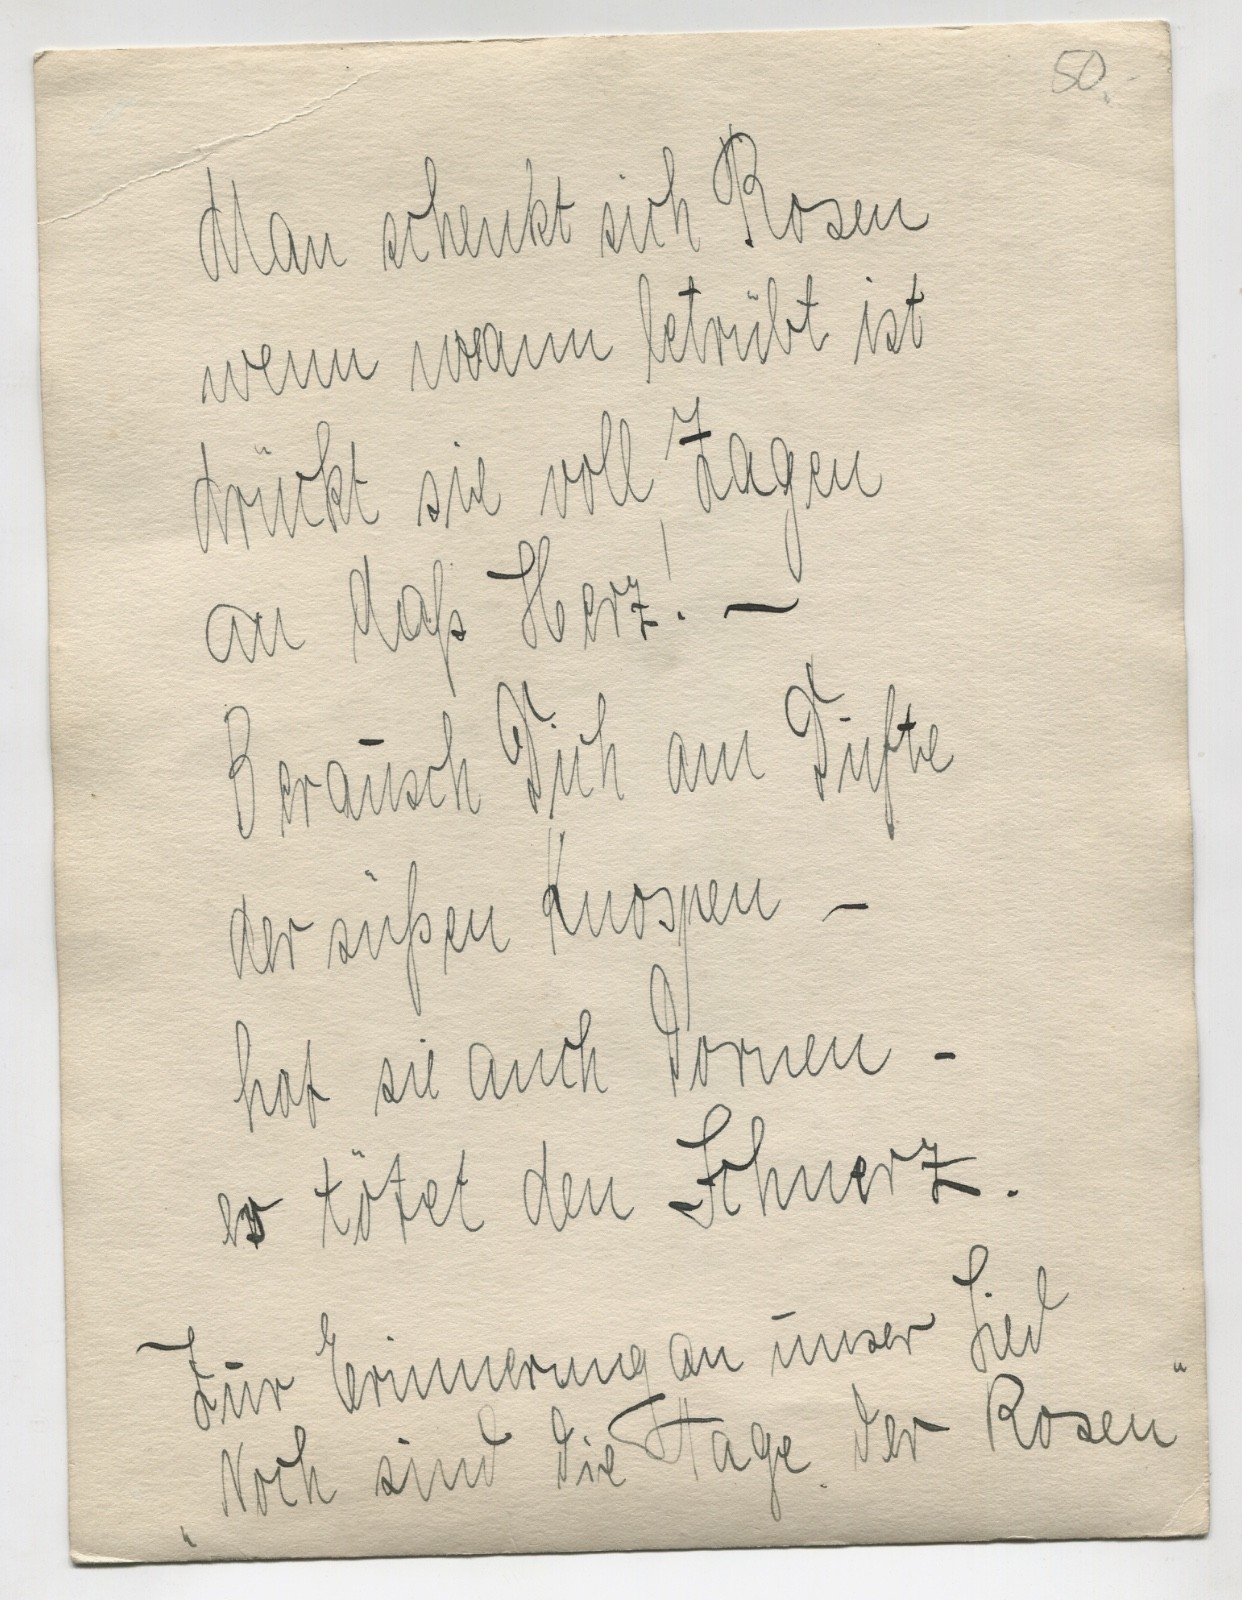 50.-
Man schenkt sich Rosen
wenn mann betrübt ist
drückt sie voll Zagen
an daß Herz! —
Beraūsch Dich am Dūfte
der süßen Knospen —
hat sie auch Dornen -
es tötet den Schmerz.
Zūr Erinnerung an ūnser Lied
„Noch sind die Tage der Rosen"